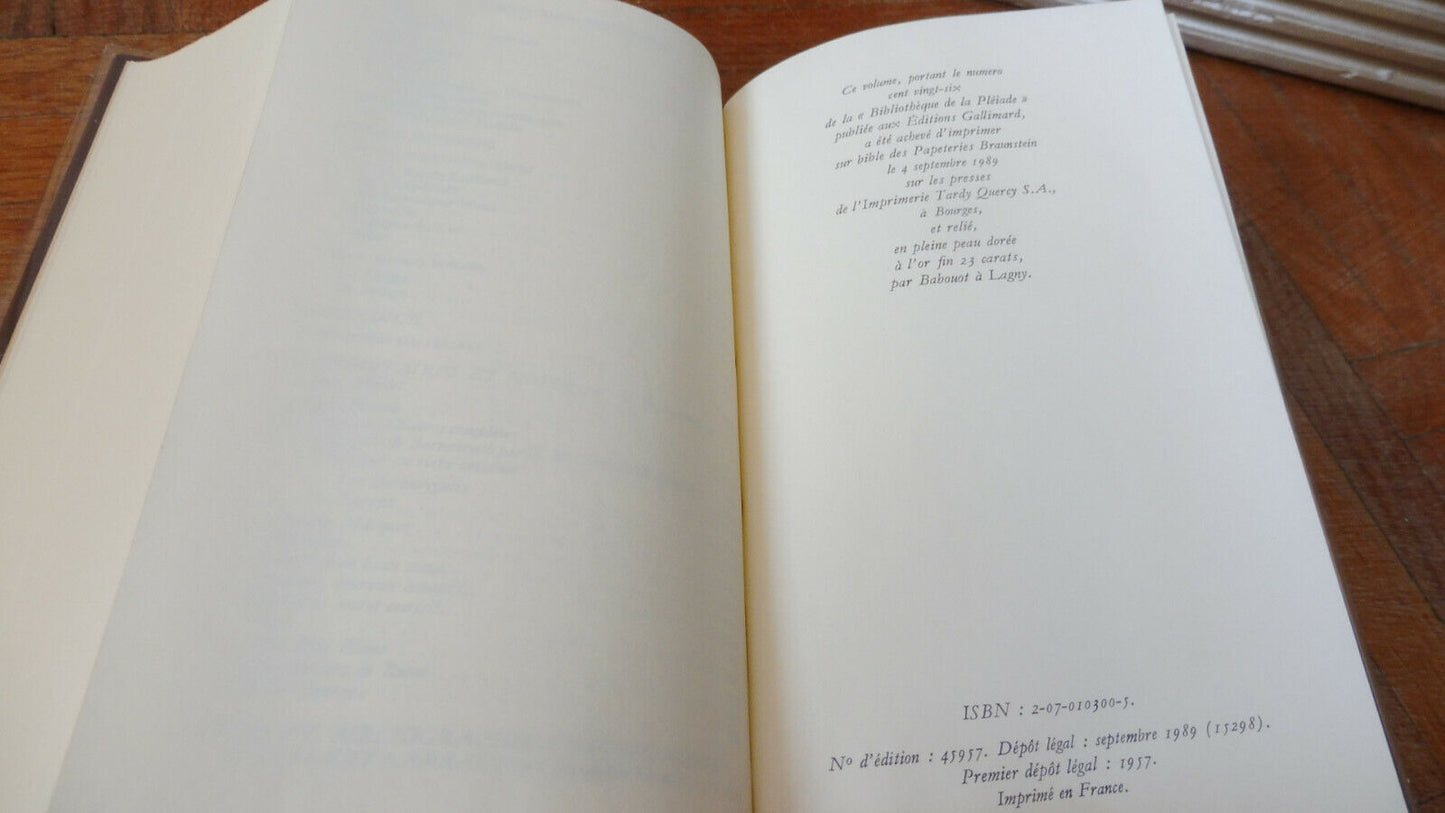 Ce volume, portant le numero
cent vingt-six
de la « Bibliothèque de la Pléiade »
publiée aux Éditions Gallimard,
a été achevé d'imprimer
sur bible des Papeteries Braunstein
le 4 septembre 1989
sur les presses
de l'Imprimerie Tardy Quercy S.A.,
à Bourges,
et relié,
en pleine peau dorée
à l'or fin 23 carats,
par Babouot à Lagny.
ISBN : 2-07-010300-5.
Nº d'édition : 45957. Dépôt légal : septembre 1989 (15298).
Premier dépôt légal : 1957.
Imprimé en France.